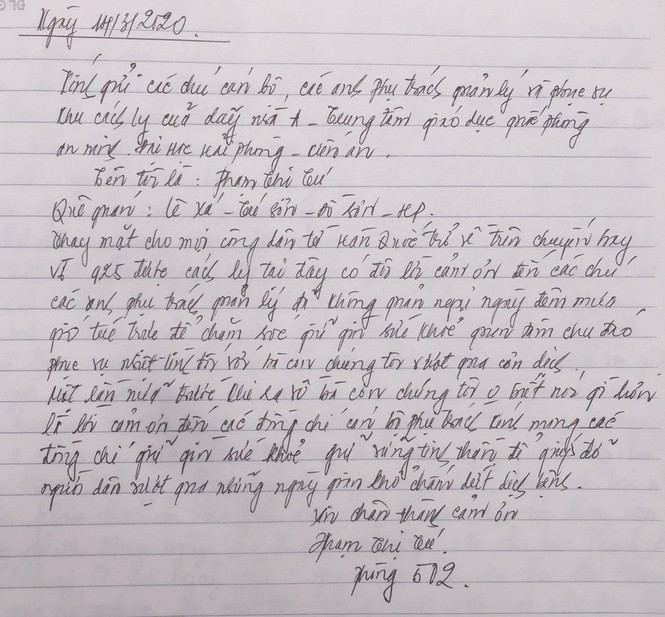 Ngày 14/3/2020.
Kính gửi các chú cán bộ, các anh phụ trách quản lý và phục vụ
khu cách ly của dãy nhà A - Trung tâm giáo dục quốc phòng
an ninh. Đại học Hải Phòng - Kiến An.
Tên tôi là : Phạm Thị Tú
Quê quán : Lê Xá - Tú Sơn - Đồ Sơn - HP.
Thay mặt cho mọi công dân từ Hàn Quốc trở về trên chuyến bay
VJ 925 được cách ly tại đây có đôi lời cảm ơn đến các chú
các anh phụ trách quản lý đã không quản ngại ngày đêm mưa
gió túc trực để chăm sóc giữ gìn sức khoẻ quan tâm chu đáo
phục vụ nhiệt tình đối với bà con chúng tôi vượt qua cơn dịch.
Một lần nữa trước khi ra về bà con chúng tôi o biết nói gì hơn
là lời cảm ơn đến các đồng chí cán bộ phụ trách kính mong các
đồng chí giữ gìn sức khoẻ giữ vững tinh thần để giúp đỡ
người dân vượt qua những ngày gian khổ chấm dứt dịch bệnh.
Xin chân thành cảm ơn
Phạm Thị Tú.
Phòng 502.